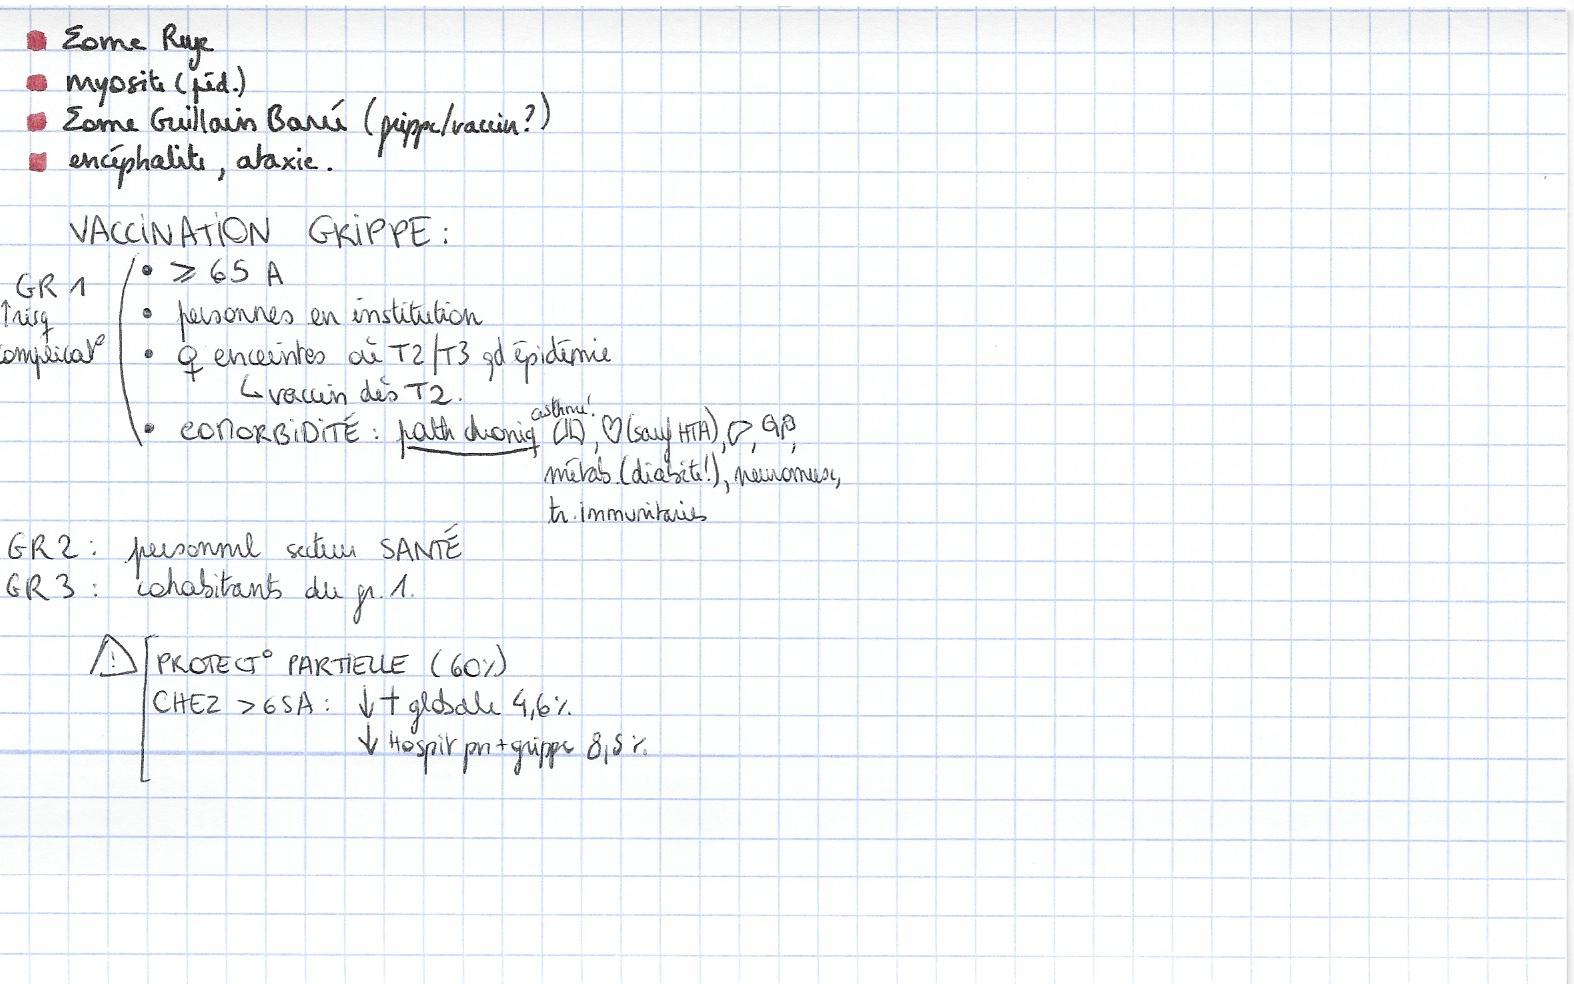 Σome Reye
myosite (péd.)
Σome Guillain Barré (grippe/vaccin?)
encéphalite, ataxie.
VACCINATION GRIPPE :
GR 1
↑ risq
complicat°
• ≥ 65 A
• personnes en institution
• ♀ enceintes où T2/T3 qd épidémie
↳ vaccin dès T2.
• COMORBIDITÉ : path chroniq asthme! , ♡ (sauf HTA), ,
métab. (diabète!), neuromusc,
tr. immunitaires
GR 2 : personnel secteur SANTÉ
GR 3 : cohabitants du gr. 1.
⚠ PROTECT° PARTIELLE (60%)
CHEZ > 65A : ↓ † globale 4,6%
↓ Hospit pn + grippe 8,5%